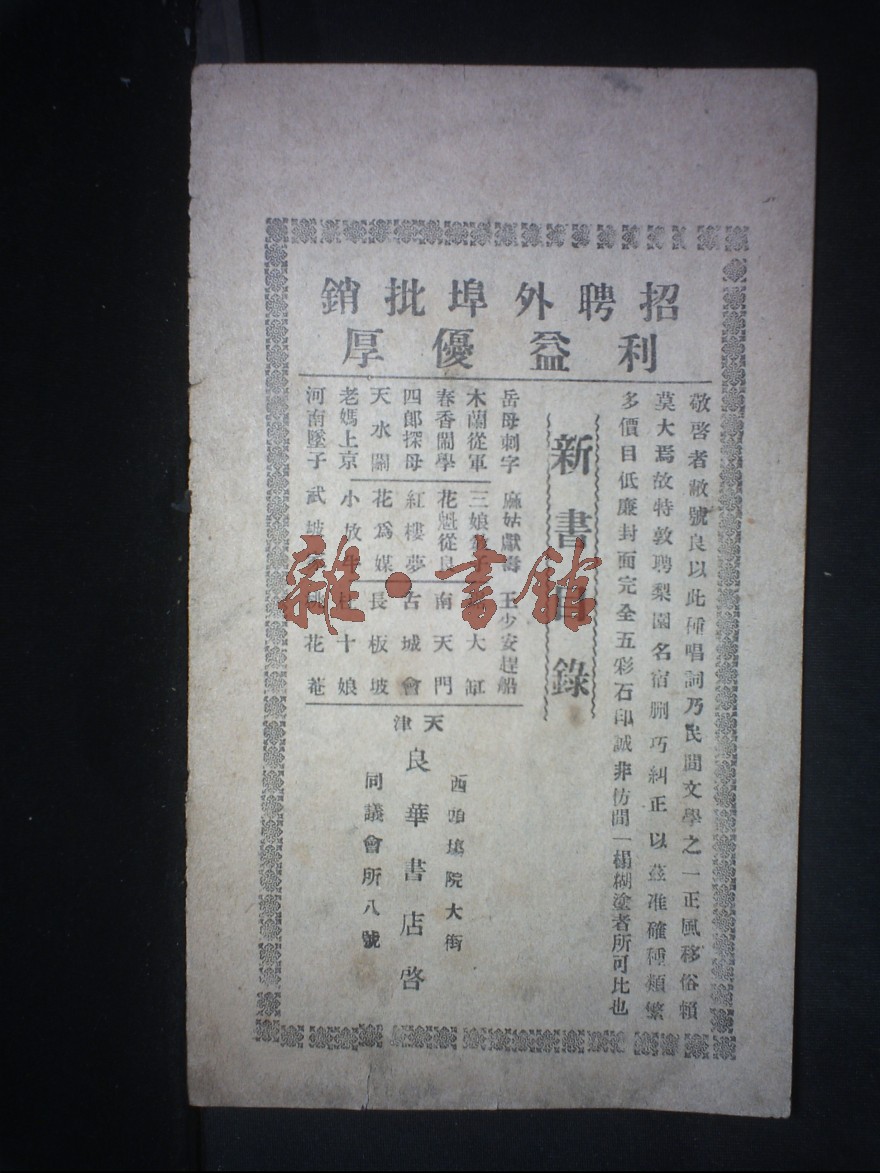 招聘外埠批銷
利益優厚
敬啓者敝號良以此種唱詞乃民間文學之一正風移俗賴
莫大焉故特敦聘梨園名宿刪巧糾正以茲准確種類繁
多價目低廉封面完全五彩石印誠非仿間一榻糊塗者所可比也
新書目錄
岳母刺字
木蘭從軍
春香鬧學
四郎探母
天水關
老媽上京
河南墜子
麻姑獻壽
三娘 子
花魁從良
紅樓夢
花爲媒
小放牛
武
王少安趕船
大缸
南天門
古城會
長板坡
杜十娘
桃花菴
天津
西頭 院大街
良華書店啓
同議會所八號
雜·書館